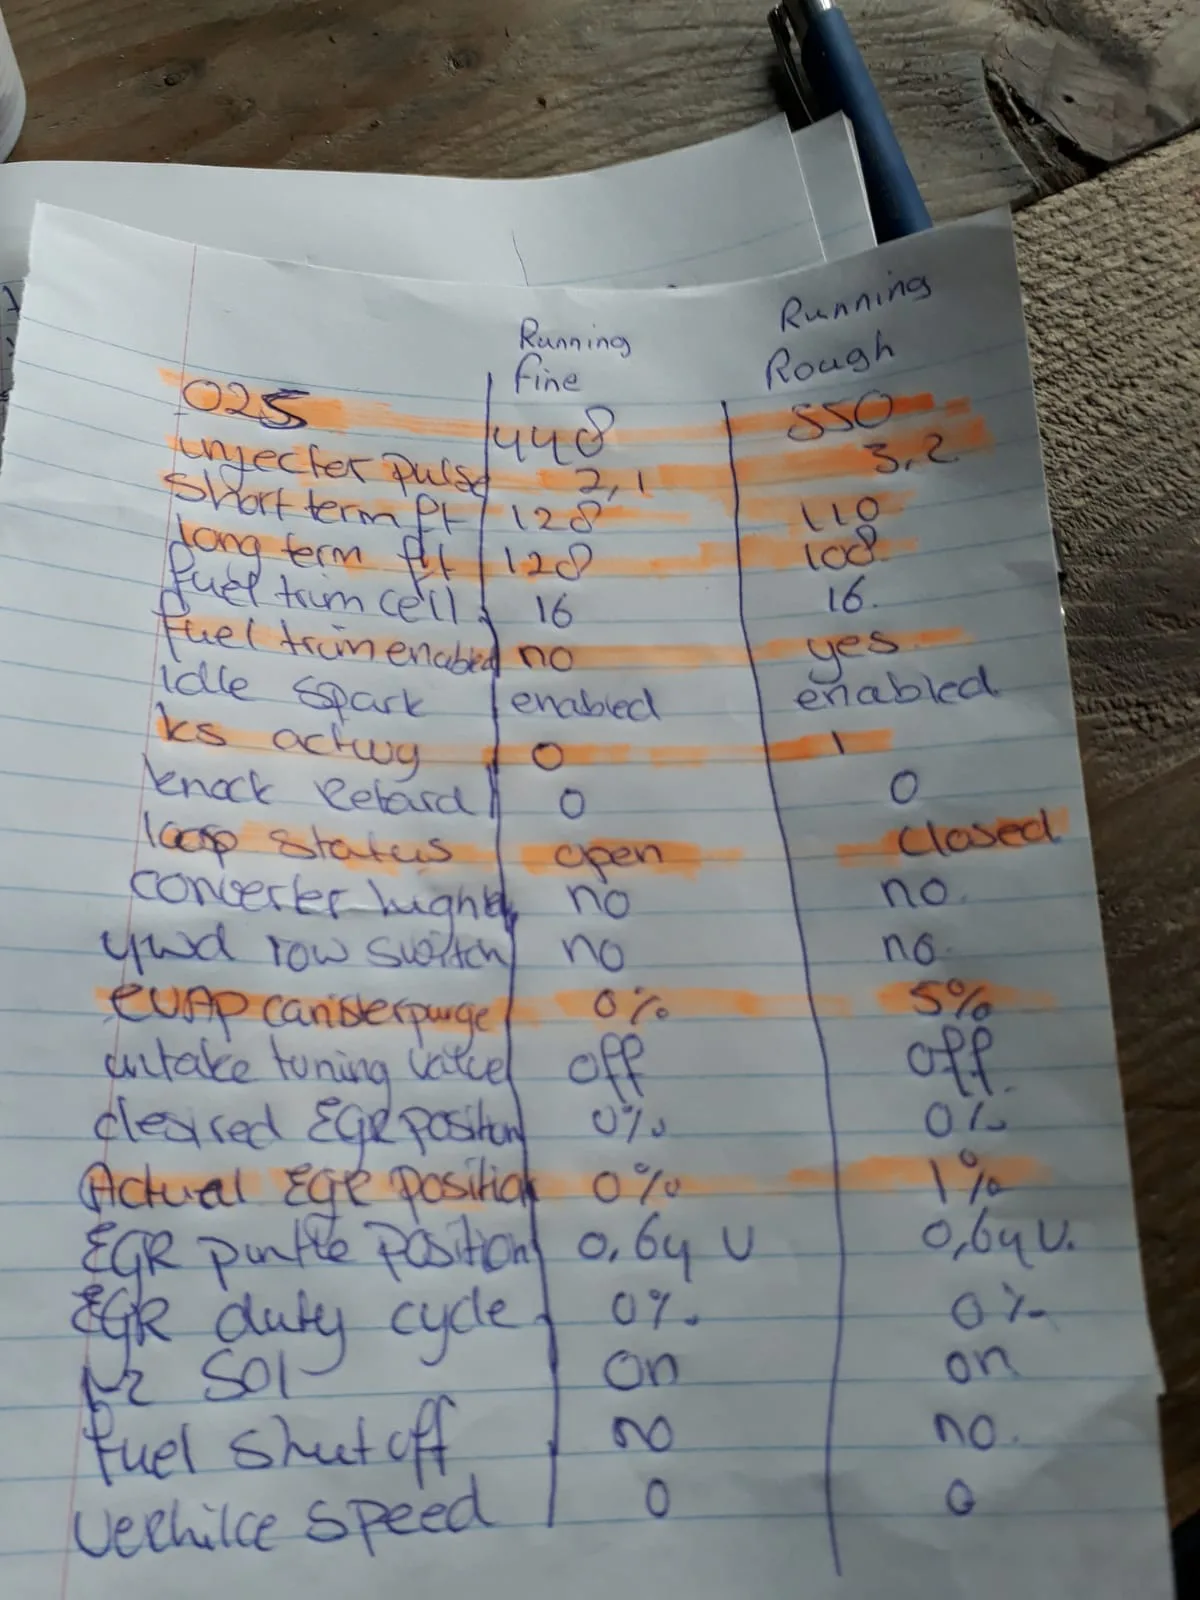 Running Fine
Running Rough
O2S 448 550
injecter pulse 2,1 3,2
Short term ft 128 110
long term ft 128 108
fuel trim cell 16 16.
fuel trim enabled no yes
idle spark enabled enabled
ks activy 0 1
knock Retard 0 0
loop status open Closed
converter hight no no.
4wd low switch no no.
EVAP canister purge 0% 5%
intake tuning valve off off.
desired EGR position 0% 0%
Actual EGR position 0% 1%
EGR pintle position 0,64 V 0,64 V.
EGR duty cycle 0%. 0%
Sol on on
fuel shut off no no.
Verhilce speed 0 0